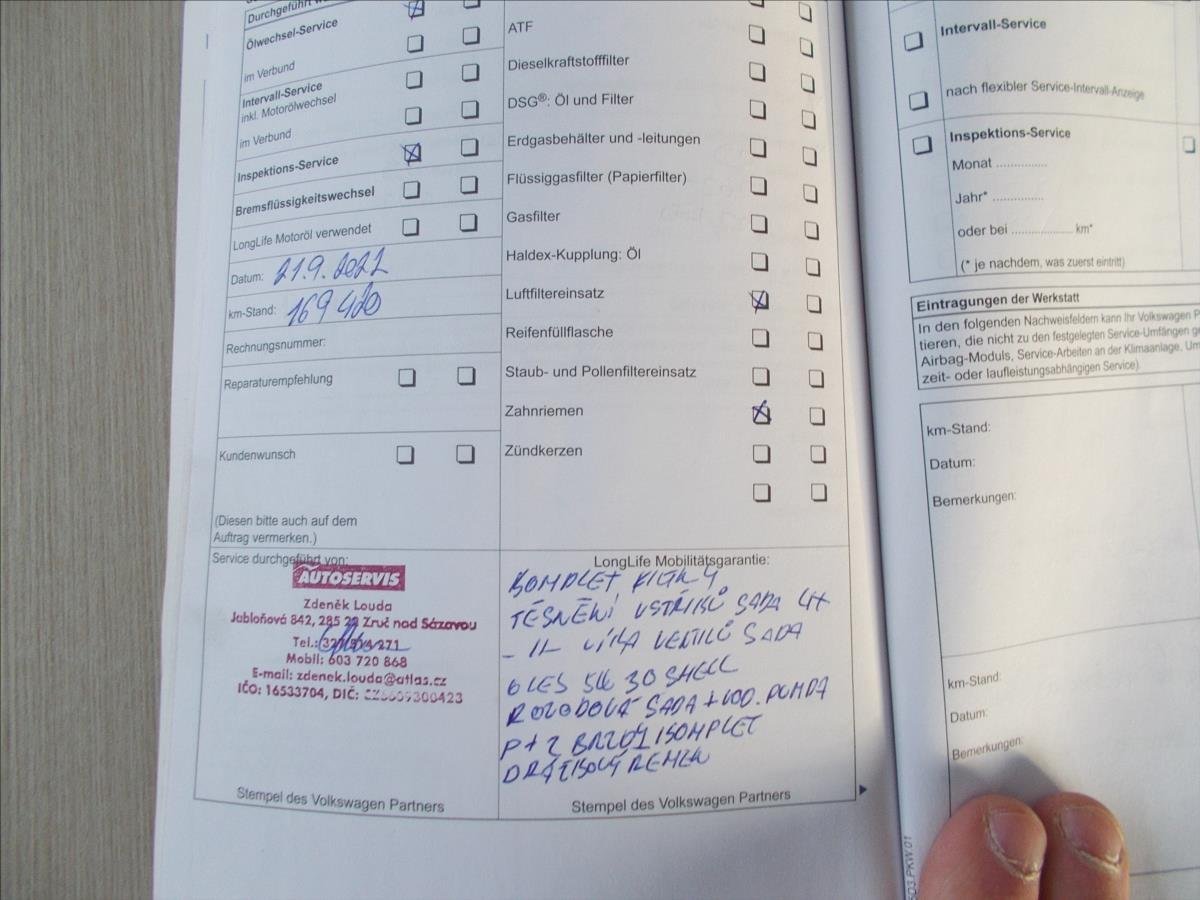 Durchgeführt
Ölwechsel-Service
im Verbund
Intervall-Service
inkl. Motorölwechsel
im Verbund
Inspektions-Service
Bremsflüssigkeitswechsel
LongLife Motoröl verwendet
Datum: 21.9.2021
km-Stand: 169 480
Rechnungsnummer:
Reparaturempfehlung
Kundenwunsch
(Diesen bitte auch auf dem
Auftrag vermerken.)
Service durchgeführt von:
AUTOSERVIS
Zdeněk Louda
Jabloňová 842, 285 22 Zruč nad Sázavou
Tel.:
Mobil: 603 720 868
E-mail: zdenek.louda@atlas.cz
IČO: 16533704, DIČ: CZ5609300423
Stempel des Volkswagen Partners
ATF
Dieselkraftstofffilter
DSG®: Öl und Filter
Erdgasbehälter und -leitungen
Flüssiggasfilter (Papierfilter)
Gasfilter
Haldex-Kupplung: Öl
Luftfiltereinsatz
Reifenfüllflasche
Staub- und Pollenfiltereinsatz
Zahnriemen
Zündkerzen
LongLife Mobilitätsgarantie:
KOMPLET FILTRY
TĚSNĚNÍ VSTŘIKŮ SADA 4x
- 11 - VÍKA VENTILŮ SADA
OLEJ 5W 30 SHELL
ROZVODOVÁ SADA + VOD. PUMPA
P + Z BRZDY KOMPLET
DRÁŽKOVÝ ŘEMEN
Stempel des Volkswagen Partners
Intervall-Service
nach flexibler Service-Intervall-Anzeige
Inspektions-Service
Monat ...............
Jahr* ...............
oder bei .................. km*
(* je nachdem, was zuerst eintritt)
Eintragungen der Werkstatt
In den folgenden Nachweisfeldern kann Ihr Volkswagen P
tieren, die nicht zu den festgelegten Service-Umfängen
Airbag-Moduls, Service-Arbeiten an der Klimaanlage, Um
zeit- oder laufleistungsabhängigen Service).
km-Stand:
Datum:
Bemerkungen:
km-Stand:
Datum:
Bemerkungen: